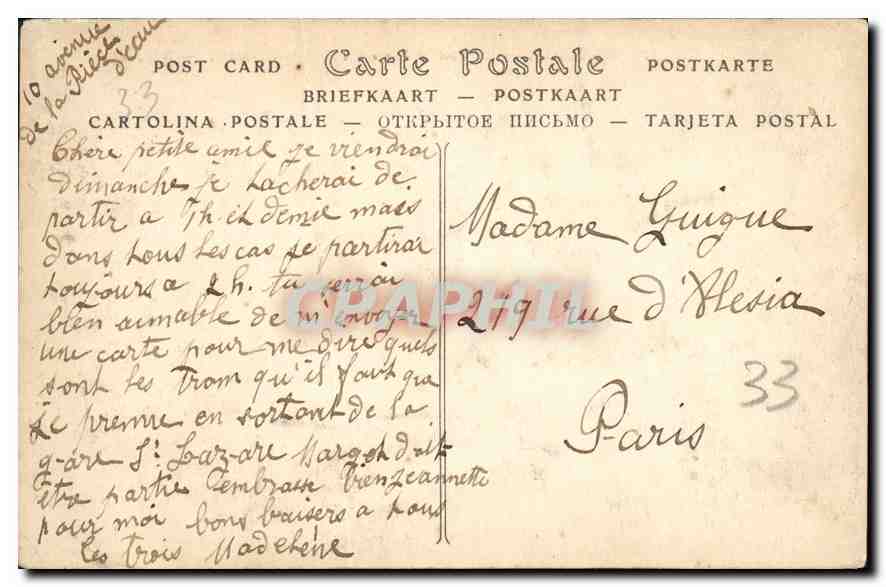 10 avenue
de la Pièce
d'eau
33
POST CARD • Carte Postale POSTKARTE
BRIEFKAART — POSTKAART
CARTOLINA POSTALE — ОТКРЫТОЕ ПИСЬМО — TARJETA POSTAL
Chère petite amie je viendrai
dimanche je tacherai de
partir a 1h. et demie mais
dans tous les cas je partirai
toujours a 2h. tu serrai
bien aimable de m'envoyer
une carte pour me dire quels
sont les Tram qu'il faut que
je prenne en sortant de la
gare St Lazare Margot doit
être partie Jembrasse bien Jeannette
pour moi bons baisers a tous
les trois Madelène
Madame Guigue
279 rue d'Alesia
Paris
33
CPAPHIL